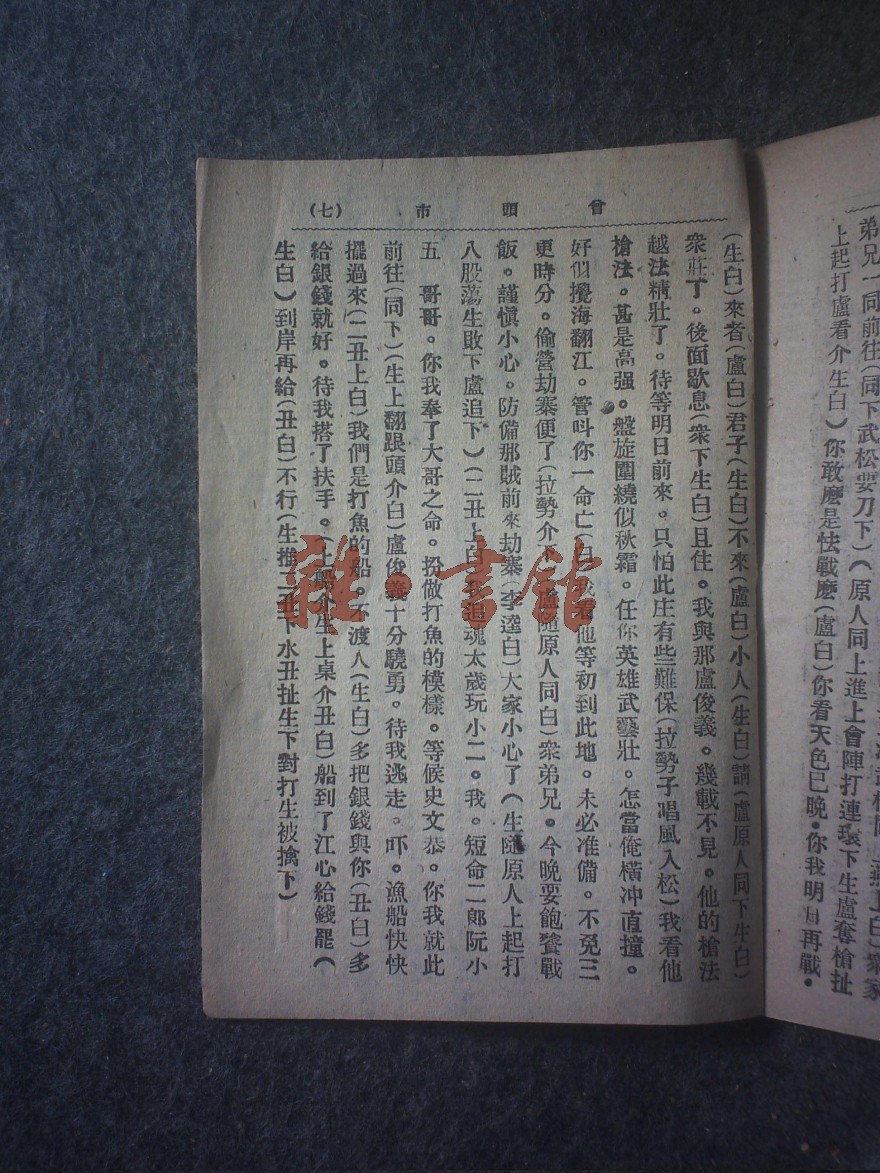 弟兄一同前往(同下武松耍刀下)(原人同上進上會陣打連環下生盧奪槍扯
上起打盧看介生白)你敢麽是怯戰麽(盧白)你看天色已晚。你我明日再戰。
曾頭市 (七)
(生白)來者(盧白)君子(生白)不來(盧白)小人(生白)請(盧原人同下生白)
衆莊丁。後面歇息(衆下生白)且住。我與那盧俊義。幾載不見。他的槍法
越法精壯了。待等明日前來。只怕此庄有些難保(拉勢子唱風入松)我看他
槍法。甚是高强。盤旋圍繞似秋霜。任你英雄武藝壯。怎當俺橫冲直撞。
好似攪海翻江。管叫你一命亡(白)我看他等初到此地。未必准備。不免三
更時分。偷營劫寨便了(拉勢介下盧隨原人同白)衆弟兄。今晚要飽餐戰
飯。謹愼小心。防備那賊前來劫寨(李逵白)大家小心了(生隨原人上起打
八股蕩生敗下盧追下)(二丑上白)我追魂太歲玩小二。我。短命二郎阮小
五 哥哥。你我奉了大哥之命。扮做打魚的模樣。等候史文恭。你我就此
前往(同下)(生上翻跟頭介白)盧俊義十分驍勇。待我逃走。吓。漁船快快
擺過來(二丑上白)我們是打魚的船。不渡人(生白)多把銀錢與你(丑白)多
給銀錢就好。待我搭了扶手。(上船介生上桌介丑白)船到了江心給錢罷(
生白)到岸再給(丑白)不行(生推二丑下水丑扯生下對打生被擒下)
雜·書館